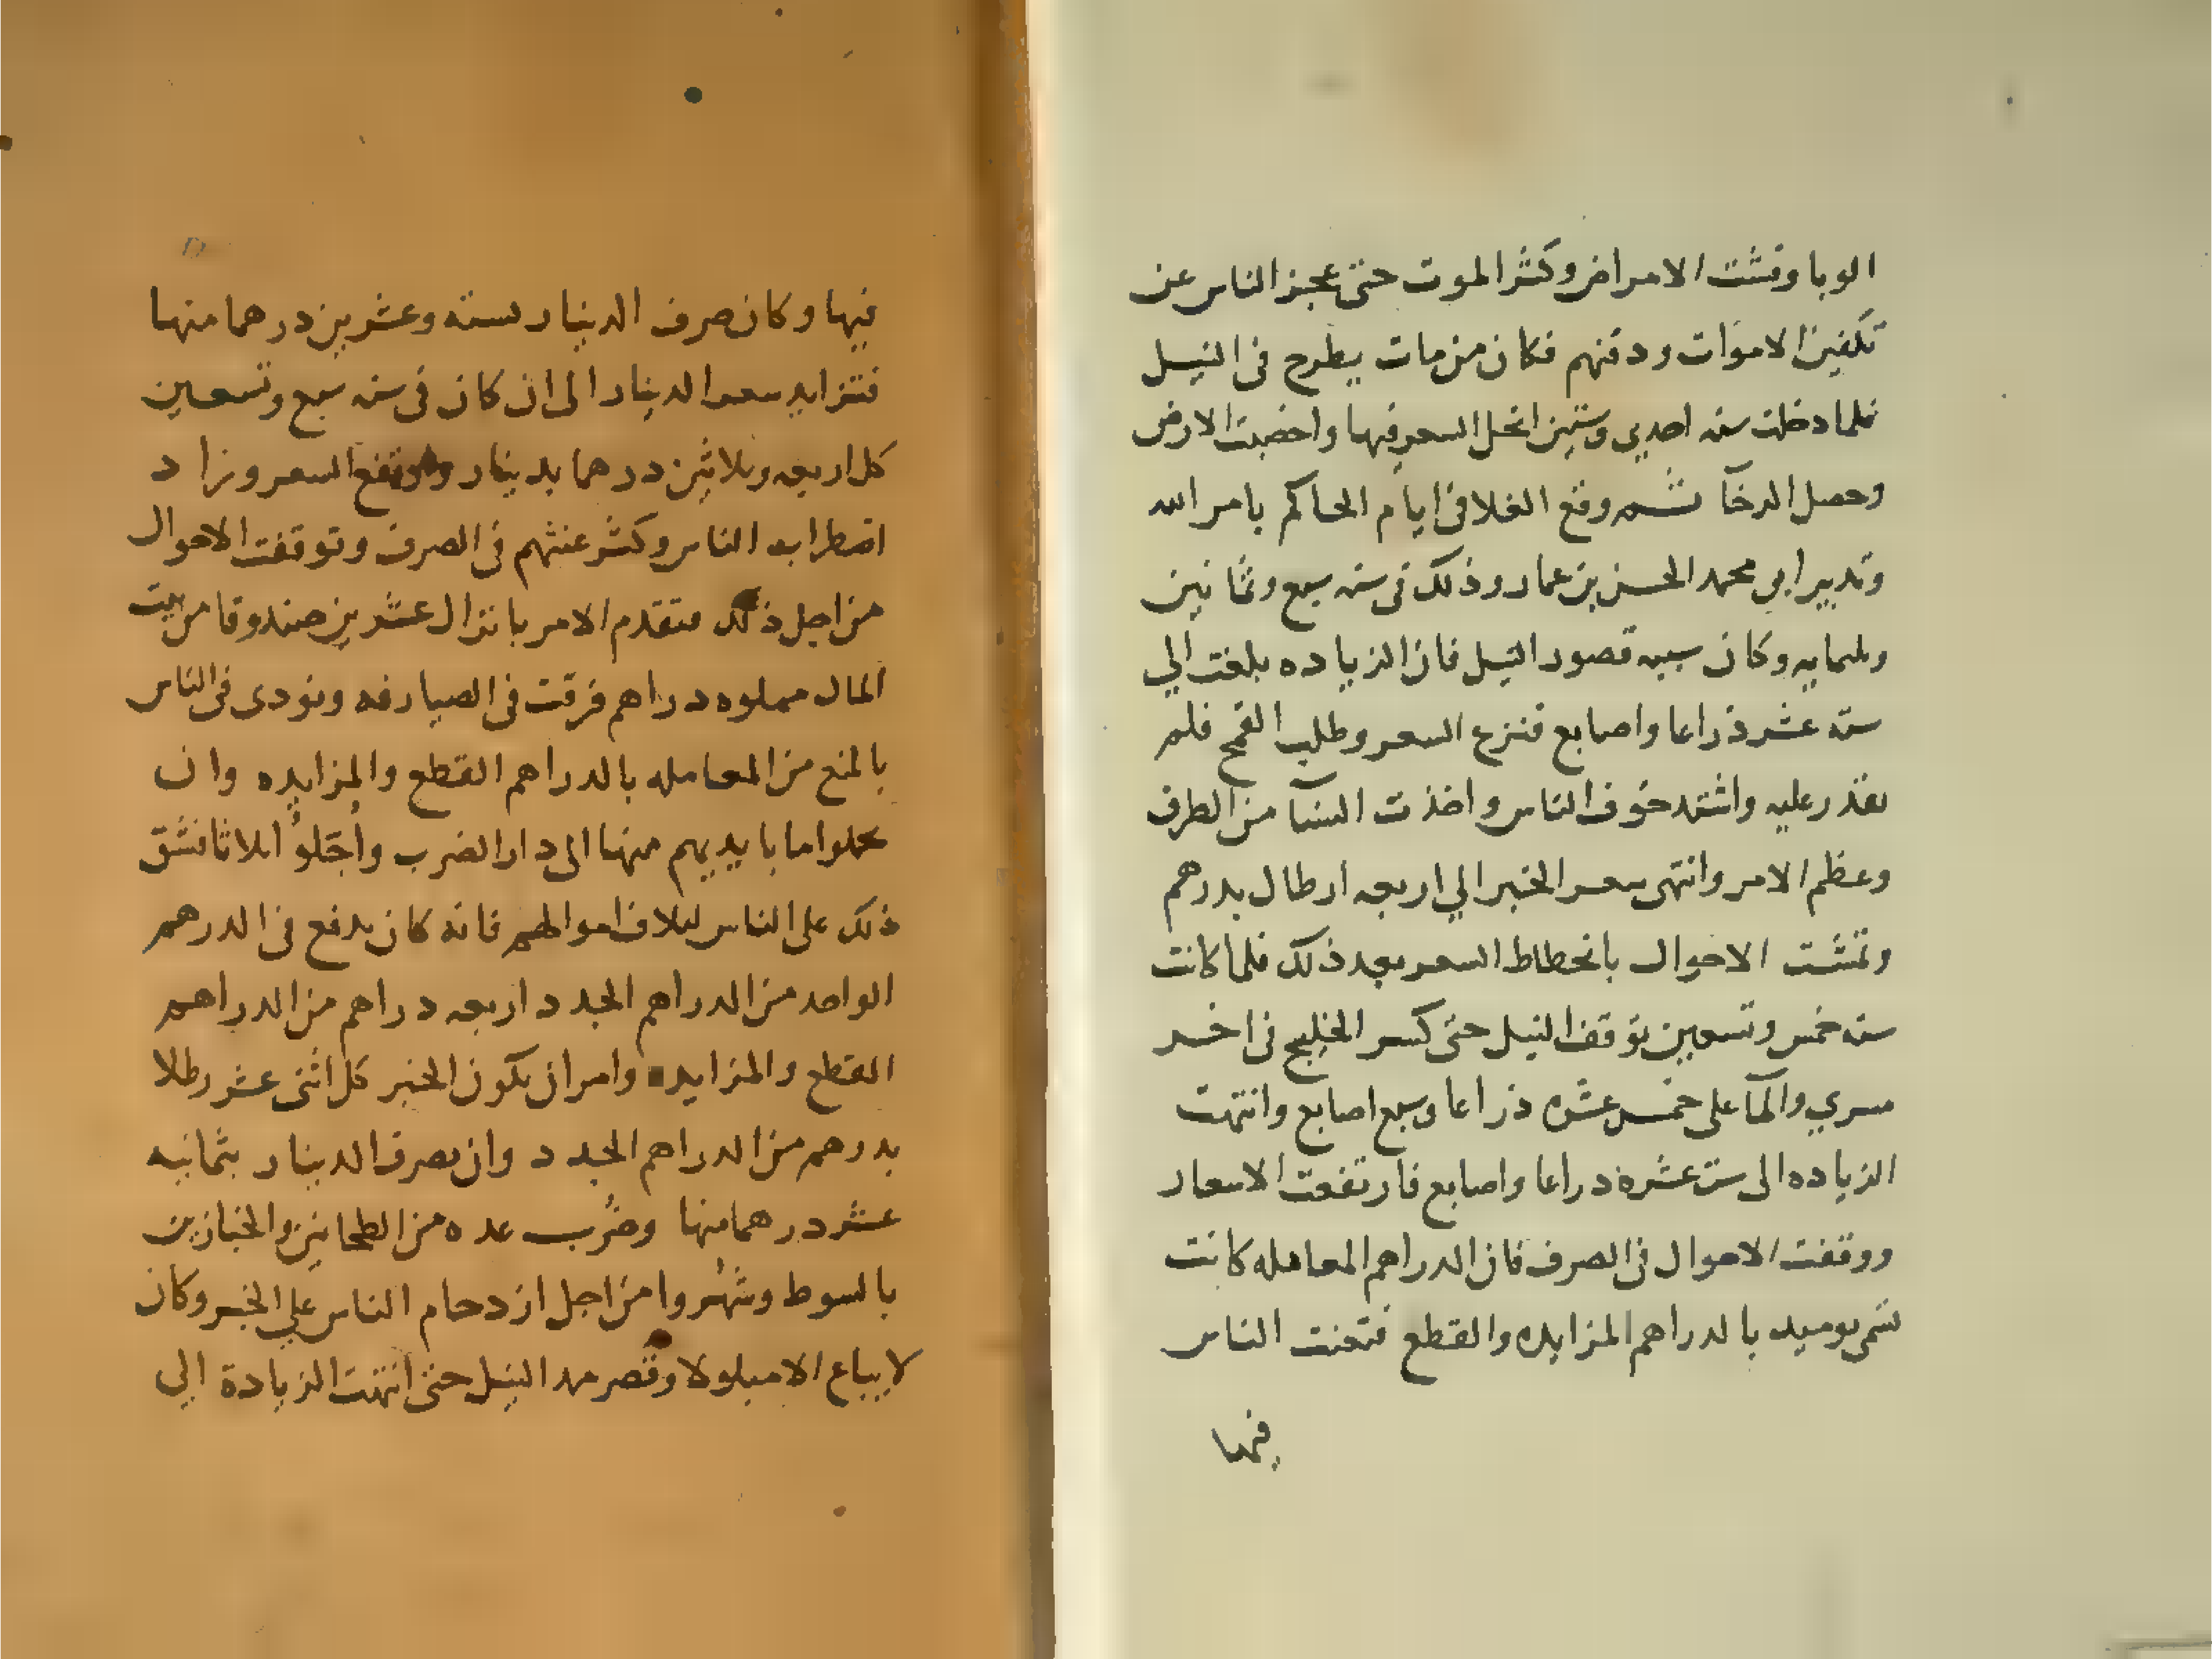 الوبا وفشت الامراض وكثر الموت حتى عجز الناس عن
تكفين الاموات ودفنهم فكان من مات يطرح فى النيل
فلما دخلت سنه احدى وستين انحل السعر فيها واخصبت الارض
وحصل الرخآ ثم وقع الغلا فى ايام الحاكم بامر الله
وتدبير ابي محمد الحسن بن عمار وذلك فى سنه سبع وثمانين
وثلثمايه وكان سببه قصور النيل فان الزياده بلغت الي
سته عشر ذراعا واصابع فنزع السعر وطلب القمح فلم
يقدر عليه واشتد خوف الناس واخذت النسآ من الطرق
وعظم الامر وانتهى سعر الخبز الي اربعه ارطال بدرهم
وتمشت الاحوال بانحطاط السعر بعد ذلك فلما كانت
سنه خمس وتسعين توقف النيل حتى كسر الخليج فى اخر
مسري والمآ على خمسه عشره ذراعا وسبع اصابع وانتهت
الزياده الى ست عشره ذراعا واصابع فارتفعت الاسعار
ووقفت الاحوال فى الصرف فان الدراهم المعامله كانت
تسمى يوميد بالدراهم المزايده والقطع فتعنت الناس
فيها
فيها وكان صرف الدينار لسته وعشرين درهما منها
فتزايد سعر الدينار الى ان كان فى سنه سبع وتسعين
كل اربعه وثلاثين درهما بدينار وارتفع السعر وزاد
اضطراب الناس وكثر عنتهم فى الصرف وتوقفت الاحوال
من اجل ذلك فتقدم الامر بانزال عشرين صندوقا من بيت
المال مملوه دراهم فرقت فى الصيارفه ونودى فى الناس
بالمنع من المعامله بالدراهم القطع والمزايده وان
يحملوا ما بايديهم منها الى دار الضرب واجلوا ثلاثا فشق
ذلك على الناس لتلاف اموالهم فانه كان يدفع فى الدرهم
الواحد من الدراهم الجدد اربعه دراهم من الدراهم
القطع والمزايده وامر ان يكون الخبز كل اثنى عشر رطلا
بدرهم من الدراهم الجدد وان يصرف الدينار بثمانيه
عشر درهما منها وضرب عده من الطحانين والخبازين
بالسوط وشهروا من اجل ازدحام الناس علي الخبز وكان
لا يباع الا مبلولا وقصر مد النيل حتى انتهت الزيادة الي